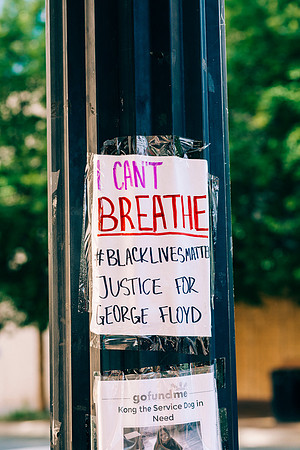 I CAN'T
BREATHE
#BLACKLIVESMATTE
JUSTICE FOR
GEORGE FLOYD
gofundme
Kong the Service Dog in
Need